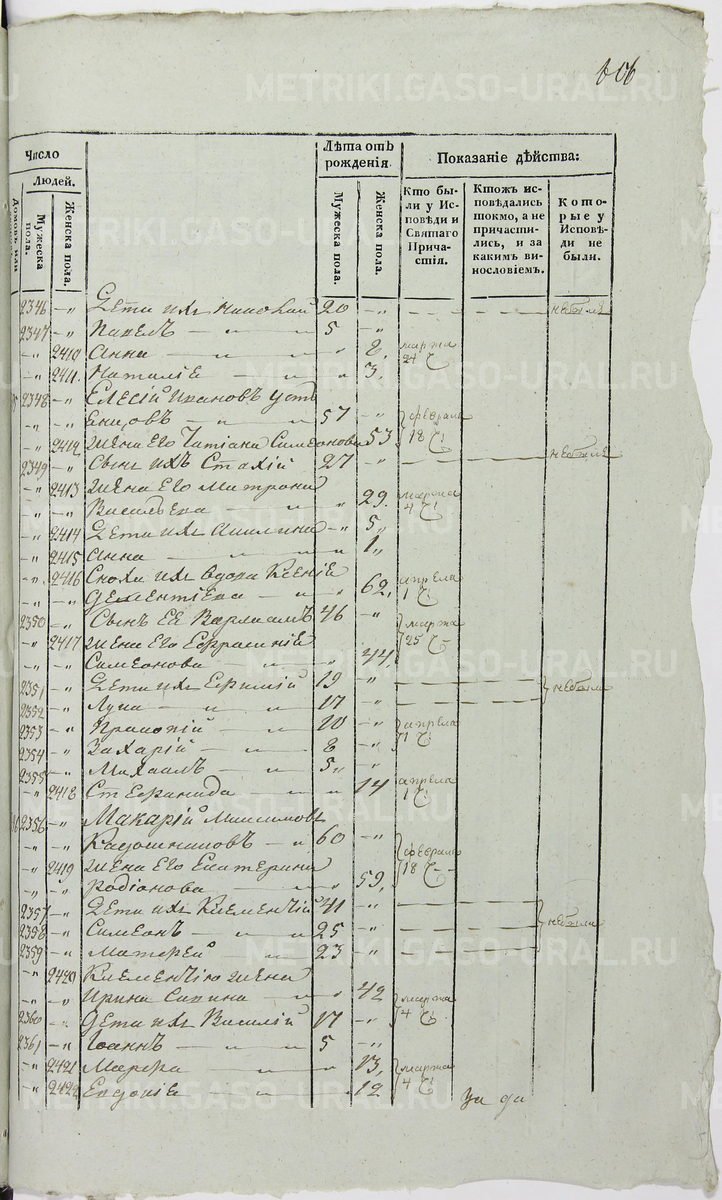 METRIKI.GASO-URAL.RU
Число
Людей.
Мужеска пола.
Женска пола.
Лѣта отъ рожденія.
Мужеска пола.
Женска пола.
Показаніе дѣйства:
Кто были у Исповѣди и Святаго Причастія.
Ктожъ исповѣдались токмо, а не причастились, и за какимъ винословіемъ.
Которые у Исповѣди не были.
2346 Дети ихъ Николай 20 небылъ
2347 Павелъ 5
2410 Анна 8 марта 24
2411 Наталіе 3
2348 Елесій Ивановъ Уст
57 февраля 18
2412 Жена Его Татіана Симеонова 53
2349 Сынъ ихъ Стахій 27 небылъ
2413 Жена Его Матрона
Васильева 29 марта 4
2414 Дети ихъ Акилина 5
2415 Анна 1
2416 Сноха ихъ вдова Ксеніе
Дементіева 62 апреля 1
2350 Сынъ Ея Варлаамъ 46 марта 25
2417 Жена Его Ефросиніе
Симеонова 44
2351 Дети ихъ Ефимій 19 небыли
2352 Лука 17
2353 Прокопій 10 апреля 1
2354 Захарій 8
2355 Михаилъ 5
2418 Стефанида 14 апреля 1
2356 Макарій Максимовъ
Кадошниковъ 60 февраля 18
2419 Жена Его Екатерина
Родіонова 59
2357 Дети ихъ Клементій 41 небыли
2358 Симеонъ 25
2359 Матфей 23
2420 Клементію жена
Ирина Савина 42 марта 4
2360 Дети ихъ Василій 17
2361 Іоаннъ 5
2421 Марфа 13 марта 4
2422 Евдокіе 12